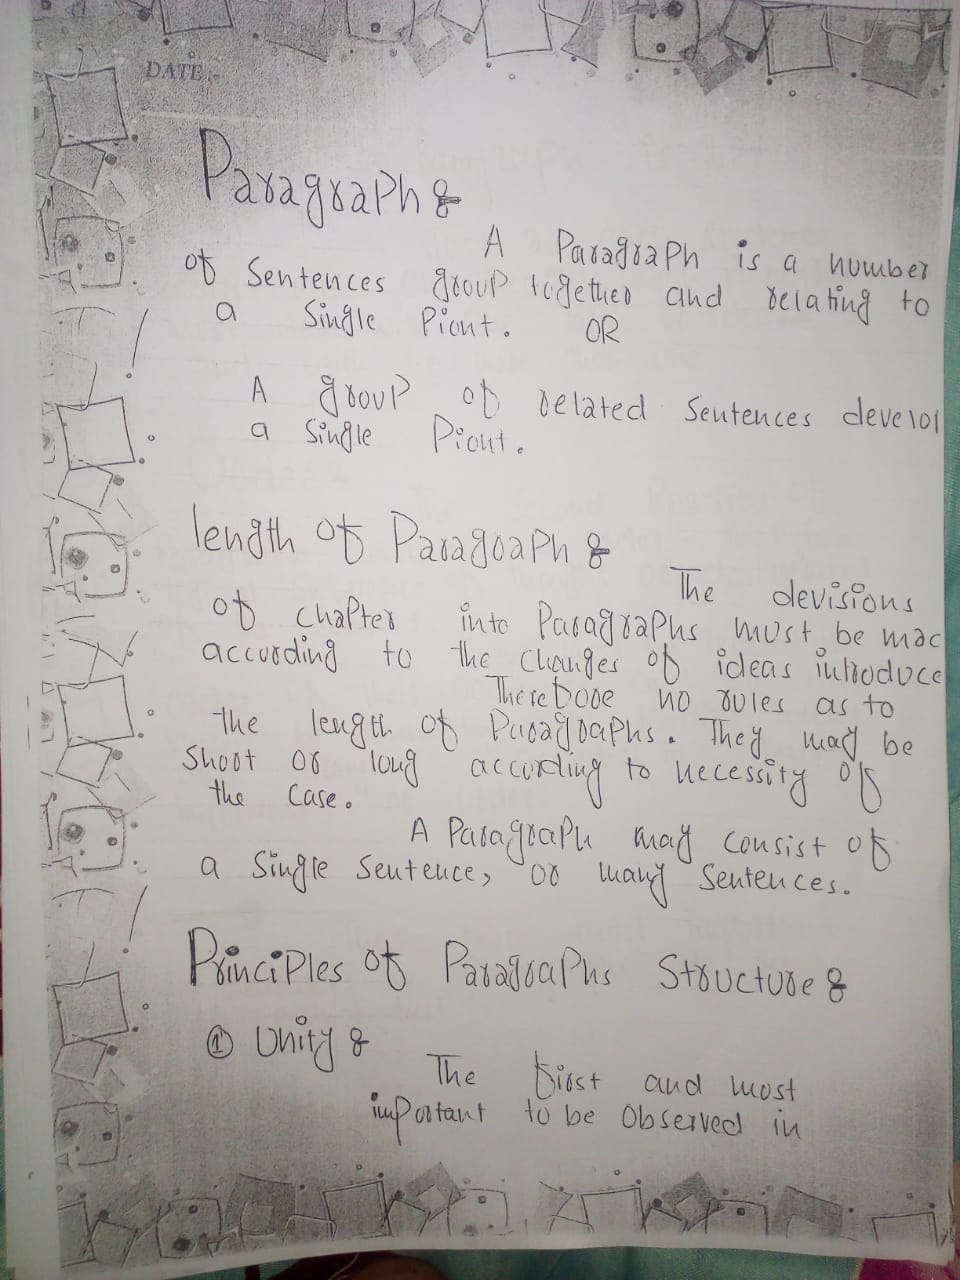 DATE :-
Paragraph :-
A Paragraph is a number
of Sentences group together and relating to
a Single Piont. OR
A group of related Sentences develop
a Single Piont.
length of Paragraph :-
The devisions
of chapter into Paragraphs must be mad
according to the changes of ideas introduce
Therefore no rules as to
the length of Paragraphs. They may be
Short or long according to necessity of
the case.
A Paragraph may consist of
a Single Sentence, or many Sentences.
Principles of Paragraphs Structure :-
① Unity :-
The first and most
important to be Observed in